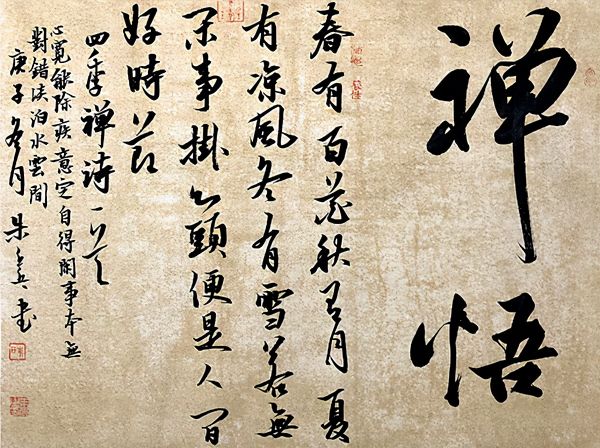 禅悟
春有百花秋有月夏
有凉風冬有雪若無
闲事掛心頭便是人间
好時节
四季禅诗一首
心寬能除疾意定自得閑事本無
對錯淡泊水雲間
庚子冬月朱書